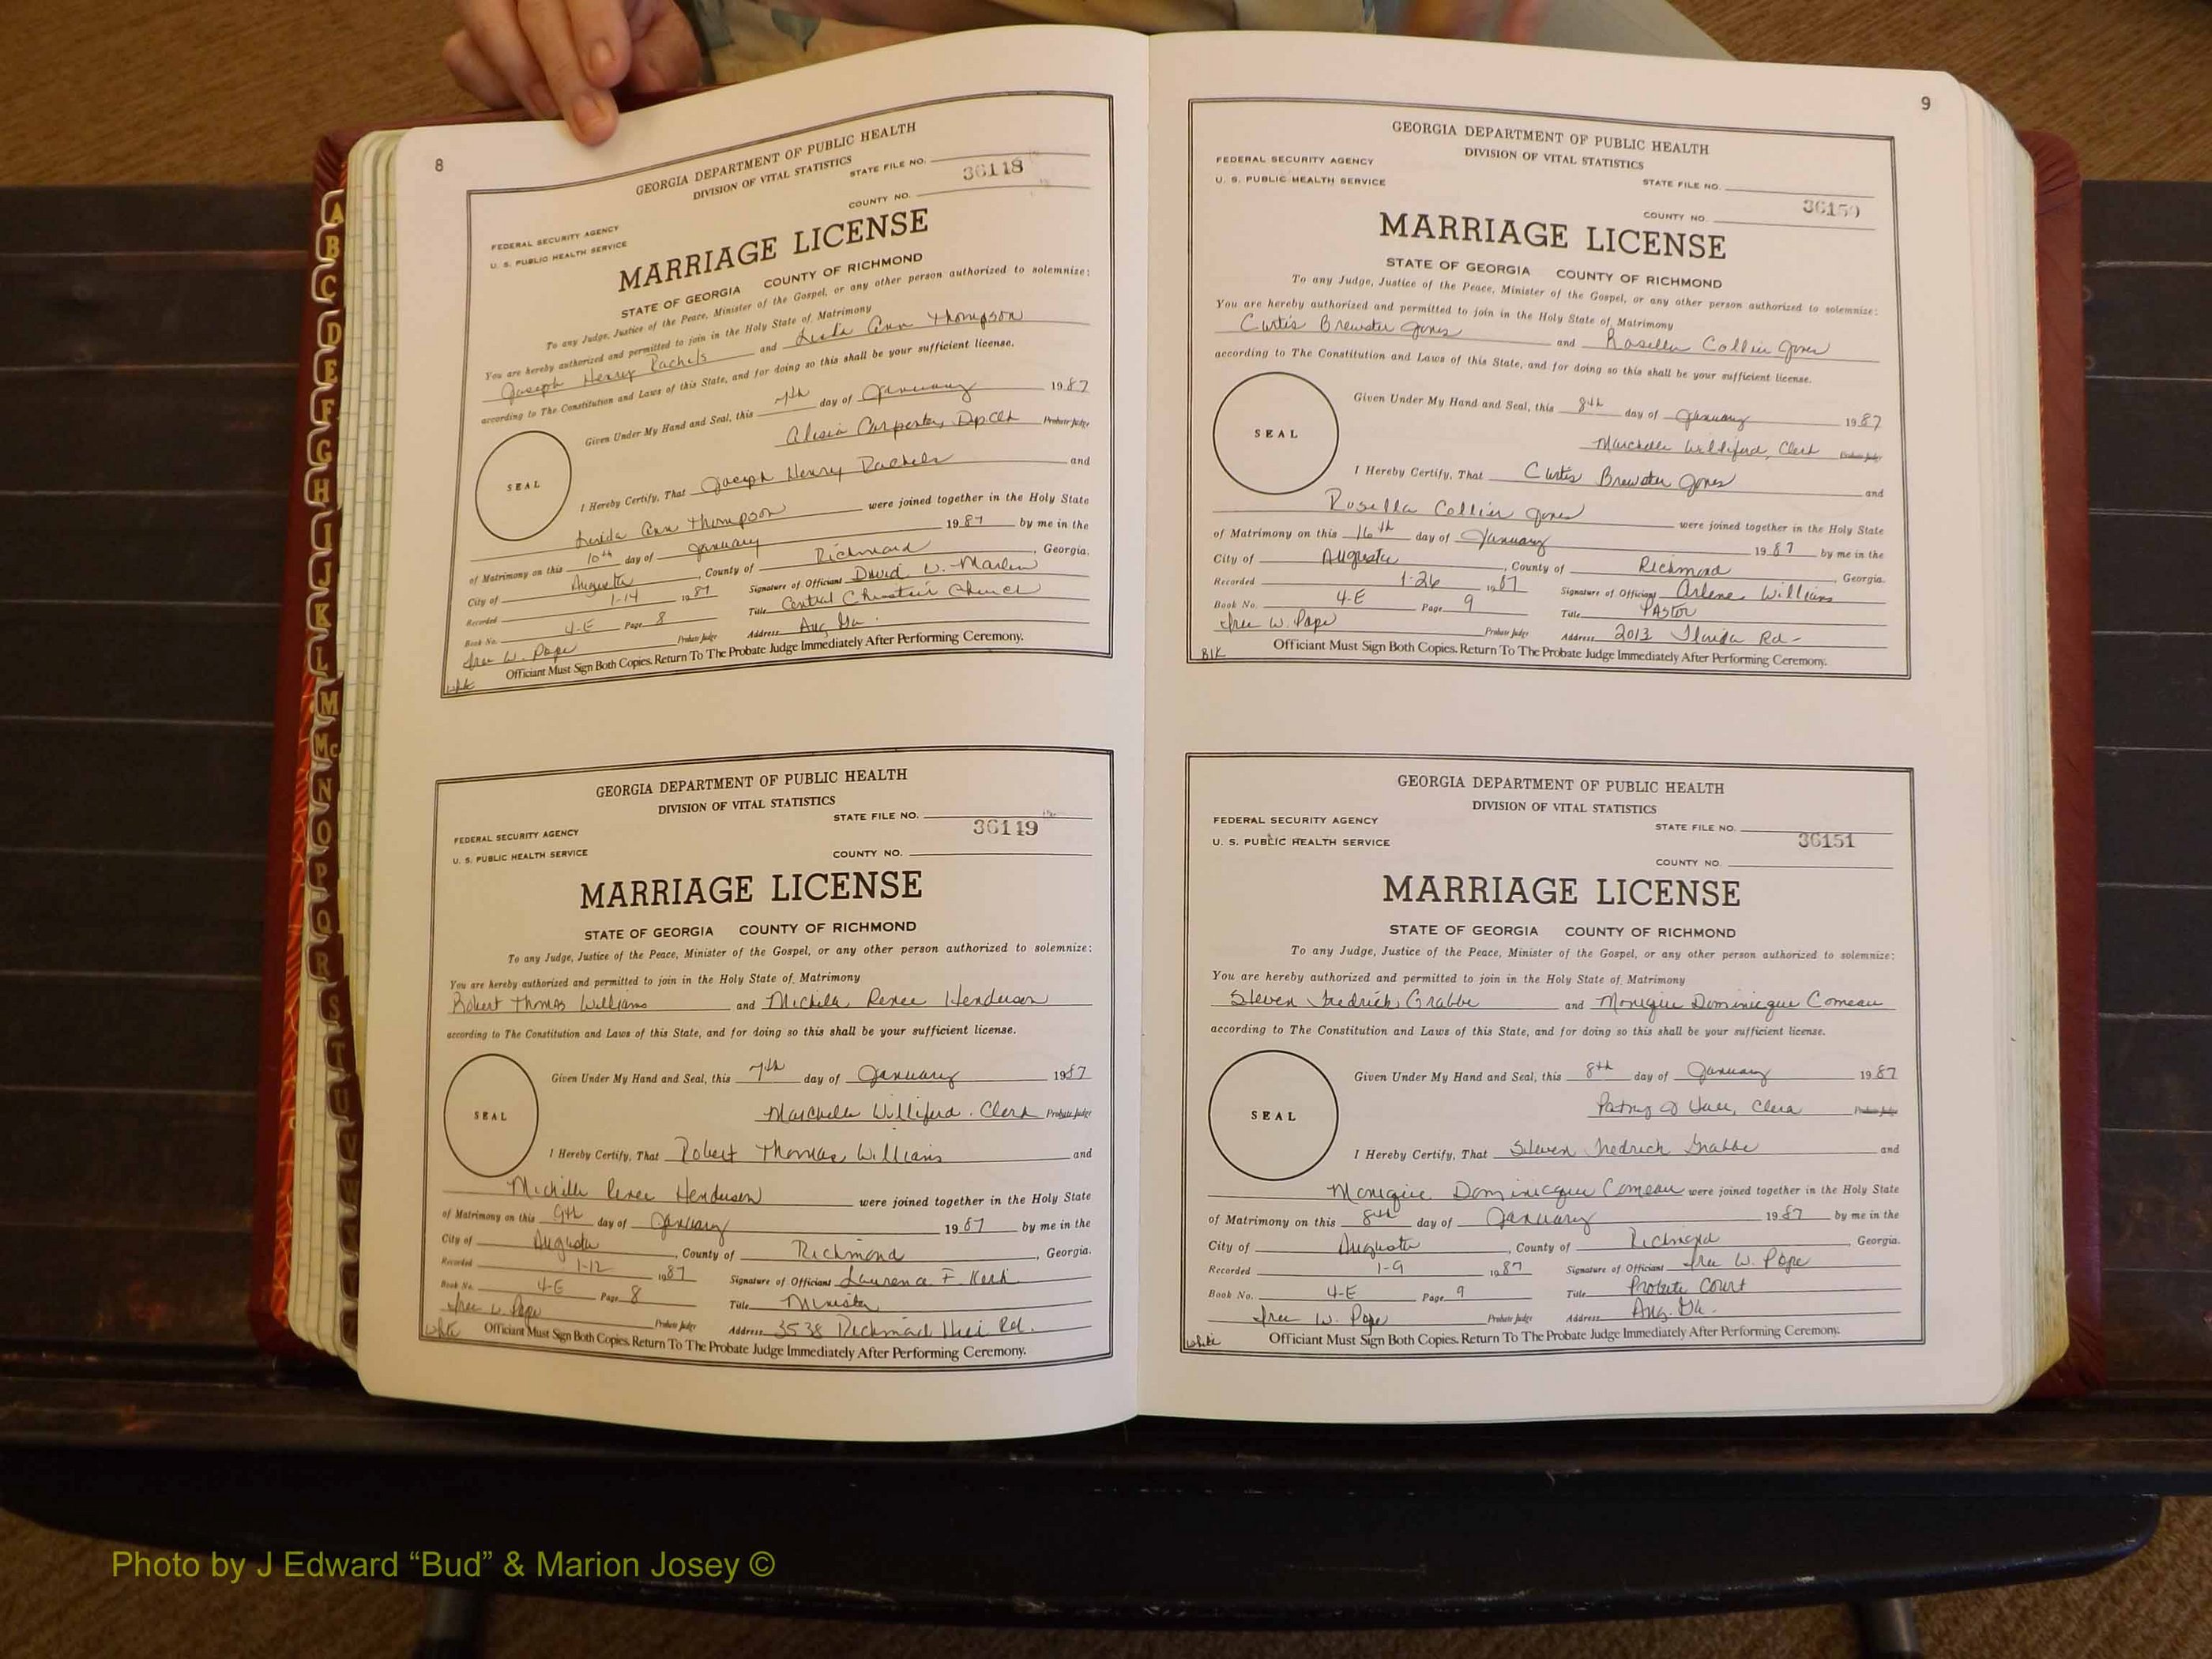 8
GEORGIA DEPARTMENT OF PUBLIC HEALTH
DIVISION OF VITAL STATISTICS
STATE FILE NO.
36148
FEDERAL SECURITY AGENCY
U. S. PUBLIC HEALTH SERVICE
COUNTY NO.
MARRIAGE LICENSE
STATE OF GEORGIA COUNTY OF RICHMOND
To any Judge, Justice of the Peace, Minister of the Gospel, or any other person authorized to solemnize:
You are hereby authorized and permitted to join in the Holy State of Matrimony
Joseph Henry Rachels and Linda Ann Thompson
according to The Constitution and Laws of this State, and for doing so this shall be your sufficient license.
Given Under My Hand and Seal, this 7th day of January 1987
SEAL
Alesia Carpenter, Dp Clk Probate Judge
I Hereby Certify, That Joseph Henry Rachels and
Linda Ann Thompson were joined together in the Holy State
of Matrimony on this 10th day of January 1987 by me in the
City of Augusta, County of Richmond, Georgia.
Recorded 1-14 1987 Signature of Officiant David W.
Book No. 4-E Page 8 Title Central Christian Church
W. Pope Probate Judge Address Aug Ga.
White Officiant Must Sign Both Copies. Return To The Probate Judge Immediately After Performing Ceremony.
GEORGIA DEPARTMENT OF PUBLIC HEALTH
DIVISION OF VITAL STATISTICS
STATE FILE NO.
36149
FEDERAL SECURITY AGENCY
U. S. PUBLIC HEALTH SERVICE
COUNTY NO.
MARRIAGE LICENSE
STATE OF GEORGIA COUNTY OF RICHMOND
To any Judge, Justice of the Peace, Minister of the Gospel, or any other person authorized to solemnize:
You are hereby authorized and permitted to join in the Holy State of Matrimony
Robert Thomas Williams and Michelle Renee Henderson
according to The Constitution and Laws of this State, and for doing so this shall be your sufficient license.
Given Under My Hand and Seal, this 7th day of January 1987
SEAL
Marchelle Williford, Clerk Probate Judge
I Hereby Certify, That Robert Thomas Williams and
Michelle Renee Henderson were joined together in the Holy State
of Matrimony on this 9th day of January 1987 by me in the
City of Augusta, County of Richmond, Georgia.
Recorded 1-12 1987 Signature of Officiant Laurence F.
Book No. 4-E Page 8 Title Minister
W. Pope Probate Judge Address 3538 Richmond Hill Rd.
White Officiant Must Sign Both Copies. Return To The Probate Judge Immediately After Performing Ceremony.
9
GEORGIA DEPARTMENT OF PUBLIC HEALTH
DIVISION OF VITAL STATISTICS
FEDERAL SECURITY AGENCY
U. S. PUBLIC HEALTH SERVICE
STATE FILE NO.
36150
COUNTY NO.
MARRIAGE LICENSE
STATE OF GEORGIA COUNTY OF RICHMOND
To any Judge, Justice of the Peace, Minister of the Gospel, or any other person authorized to solemnize:
You are hereby authorized and permitted to join in the Holy State of Matrimony
Curtis Brewster Jones and Rosella Collier Jones
according to The Constitution and Laws of this State, and for doing so this shall be your sufficient license.
Given Under My Hand and Seal, this 8th day of January 1987
SEAL
Marchelle Williford, Clerk Probate Judge
I Hereby Certify, That Curtis Brewster Jones and
Rosella Collier Jones were joined together in the Holy State
of Matrimony on this 16th day of January 1987 by me in the
City of Augusta, County of Richmond, Georgia.
Recorded 1-26 1987 Signature of Officiant Arlene Williams
Book No. 4-E Page 9 Title PAStor
W. Pope Probate Judge Address 2013 Florida Rd-
Blk Officiant Must Sign Both Copies. Return To The Probate Judge Immediately After Performing Ceremony.
GEORGIA DEPARTMENT OF PUBLIC HEALTH
DIVISION OF VITAL STATISTICS
FEDERAL SECURITY AGENCY
STATE FILE NO.
36151
U. S. PUBLIC HEALTH SERVICE
COUNTY NO.
MARRIAGE LICENSE
STATE OF GEORGIA COUNTY OF RICHMOND
To any Judge, Justice of the Peace, Minister of the Gospel, or any other person authorized to solemnize:
You are hereby authorized and permitted to join in the Holy State of Matrimony
Steven Fredrick Grabbe and Monique Dominicque Comeau
according to The Constitution and Laws of this State, and for doing so this shall be your sufficient license.
Given Under My Hand and Seal, this 8th day of January 1987
SEAL
Clerk Probate Judge
I Hereby Certify, That Steven Fredrick Grabbe and
Monique Dominicque Comeau were joined together in the Holy State
of Matrimony on this 8th day of January 1987 by me in the
City of Augusta, County of Richmond, Georgia.
Recorded 1-9 1987 Signature of Officiant W. Pope
Book No. 4-E Page 9 Title Probate Court
W. Pope Probate Judge Address Aug. Ga.
White Officiant Must Sign Both Copies. Return To The Probate Judge Immediately After Performing Ceremony.
A
B
C
D
E
F
G
H
I
J
K
L
M
Mc
N
O
P
Q
R
S
T
U
Photo by J Edward “Bud” & Marion Josey ©